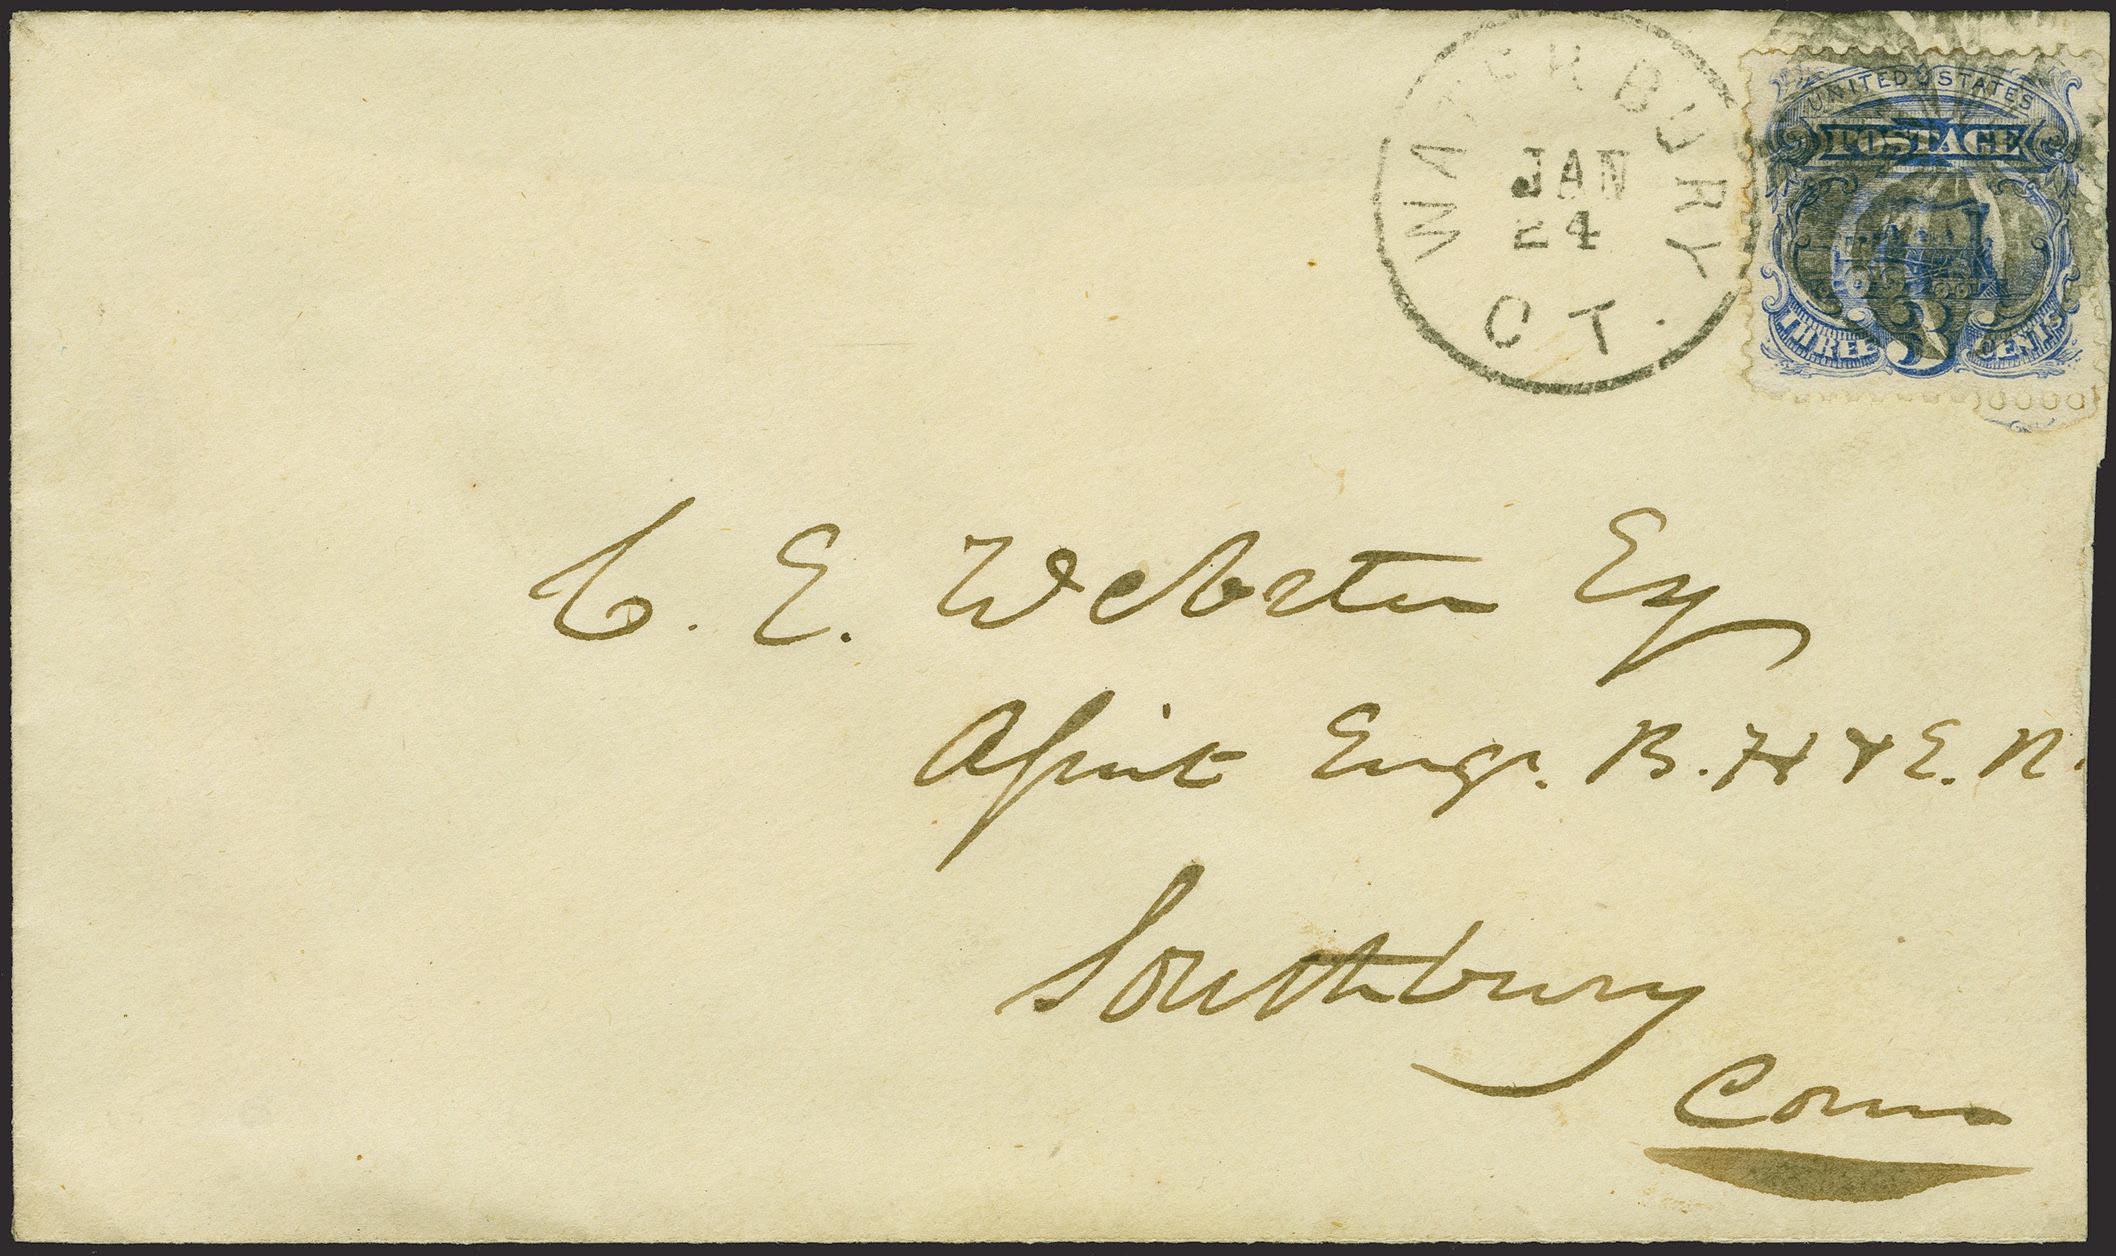 WATERBURY
JAN
24
CT.
UNITED STATES
POSTAGE
THREE 3 CENTS
C. E. Webster Esq
Assist Engr. B. H & E. R.
Southbury
Conn